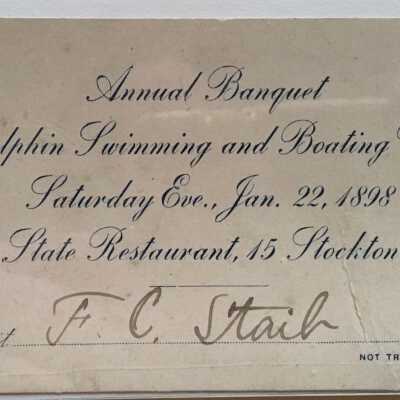 Annual Banquet
lphin Swimming and Boating
Saturday Eve., Jan. 22, 1898
State Restaurant, 15 Stockton
t F. C. Staib
NOT TR